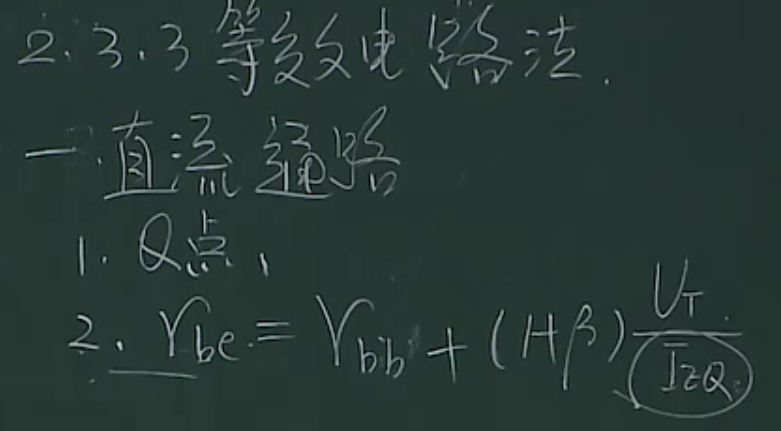 2.3.3 等效电路法.
一.直流通路
1. Q点,
2. r_be = r_bb' + (1+β) U_T / I_EQ